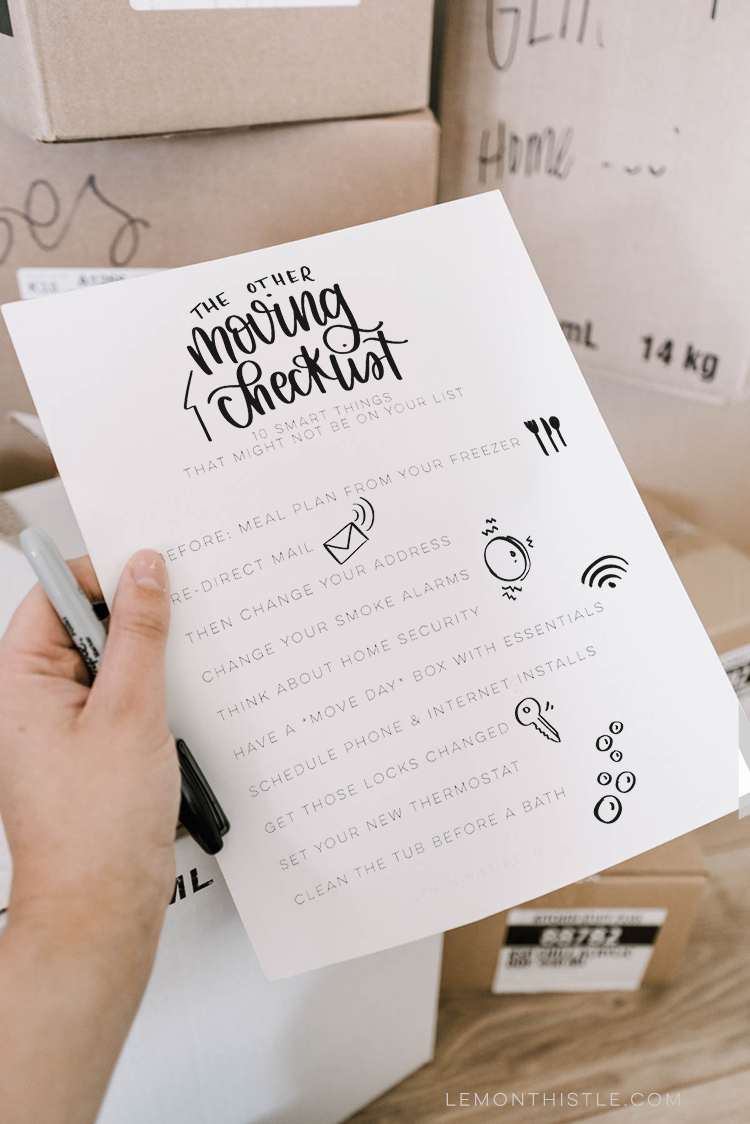 Home
14 kg
THE OTHER
moving
checklist
10 SMART THINGS
THAT MIGHT NOT BE ON YOUR LIST
BEFORE: MEAL PLAN FROM YOUR FREEZER
RE-DIRECT MAIL
THEN CHANGE YOUR ADDRESS
CHANGE YOUR SMOKE ALARMS
THINK ABOUT HOME SECURITY
HAVE A *MOVE DAY* BOX WITH ESSENTIALS
SCHEDULE PHONE & INTERNET INSTALLS
GET THOSE LOCKS CHANGED
SET YOUR NEW THERMOSTAT
CLEAN THE TUB BEFORE A BATH
ML
LEMONTHISTLE.COM